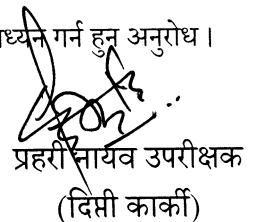 गर्न हुन अनुरोध ।
प्रहरी नायव उपरीक्षक
(दिप्ती कार्की)